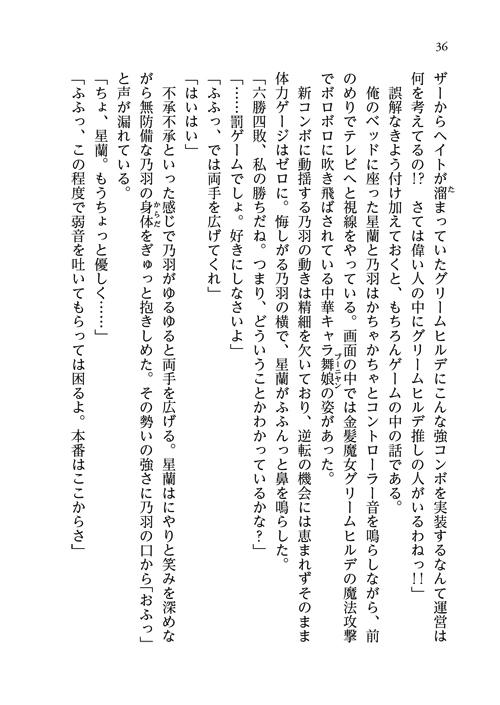 36
ザーからヘイトが溜まっていたグリームヒルデにこんな強コンボを実装するなんて運営は
何を考えてるの!? さては偉い人の中にグリームヒルデ推しの人がいるわねっ!!」
誤解なきよう付け加えておくと、もちろんゲームの中の話である。
俺のベッドに座った星蘭と乃羽はかちゃかちゃとコントローラー音を鳴らしながら、前
のめりでテレビへと視線をやっている。画面の中では金髪魔女グリームヒルデの魔法攻撃
でボロボロに吹き飛ばされている中華キャラ舞娘の姿があった。
新コンボに動揺する乃羽の動きは精細を欠いており、逆転の機会には恵まれずそのまま
体力ゲージはゼロに。悔しがる乃羽の横で、星蘭がふふんっと鼻を鳴らした。
「六勝四敗、私の勝ちだね。つまり、どういうことかわかっているかな？」
「……罰ゲームでしょ。好きにしなさいよ」
「ふふっ、では両手を広げてくれ」
「はいはい」
不承不承といった感じで乃羽がゆるゆると両手を広げる。星蘭はにやりと笑みを深めな
がら無防備な乃羽の身体をぎゅっと抱きしめた。その勢いの強さに乃羽の口から「おふっ」
と声が漏れている。
「ちょ、星蘭。もうちょっと優しく……」
「ふふっ、この程度で弱音を吐いてもらっては困るよ。本番はここからさ」